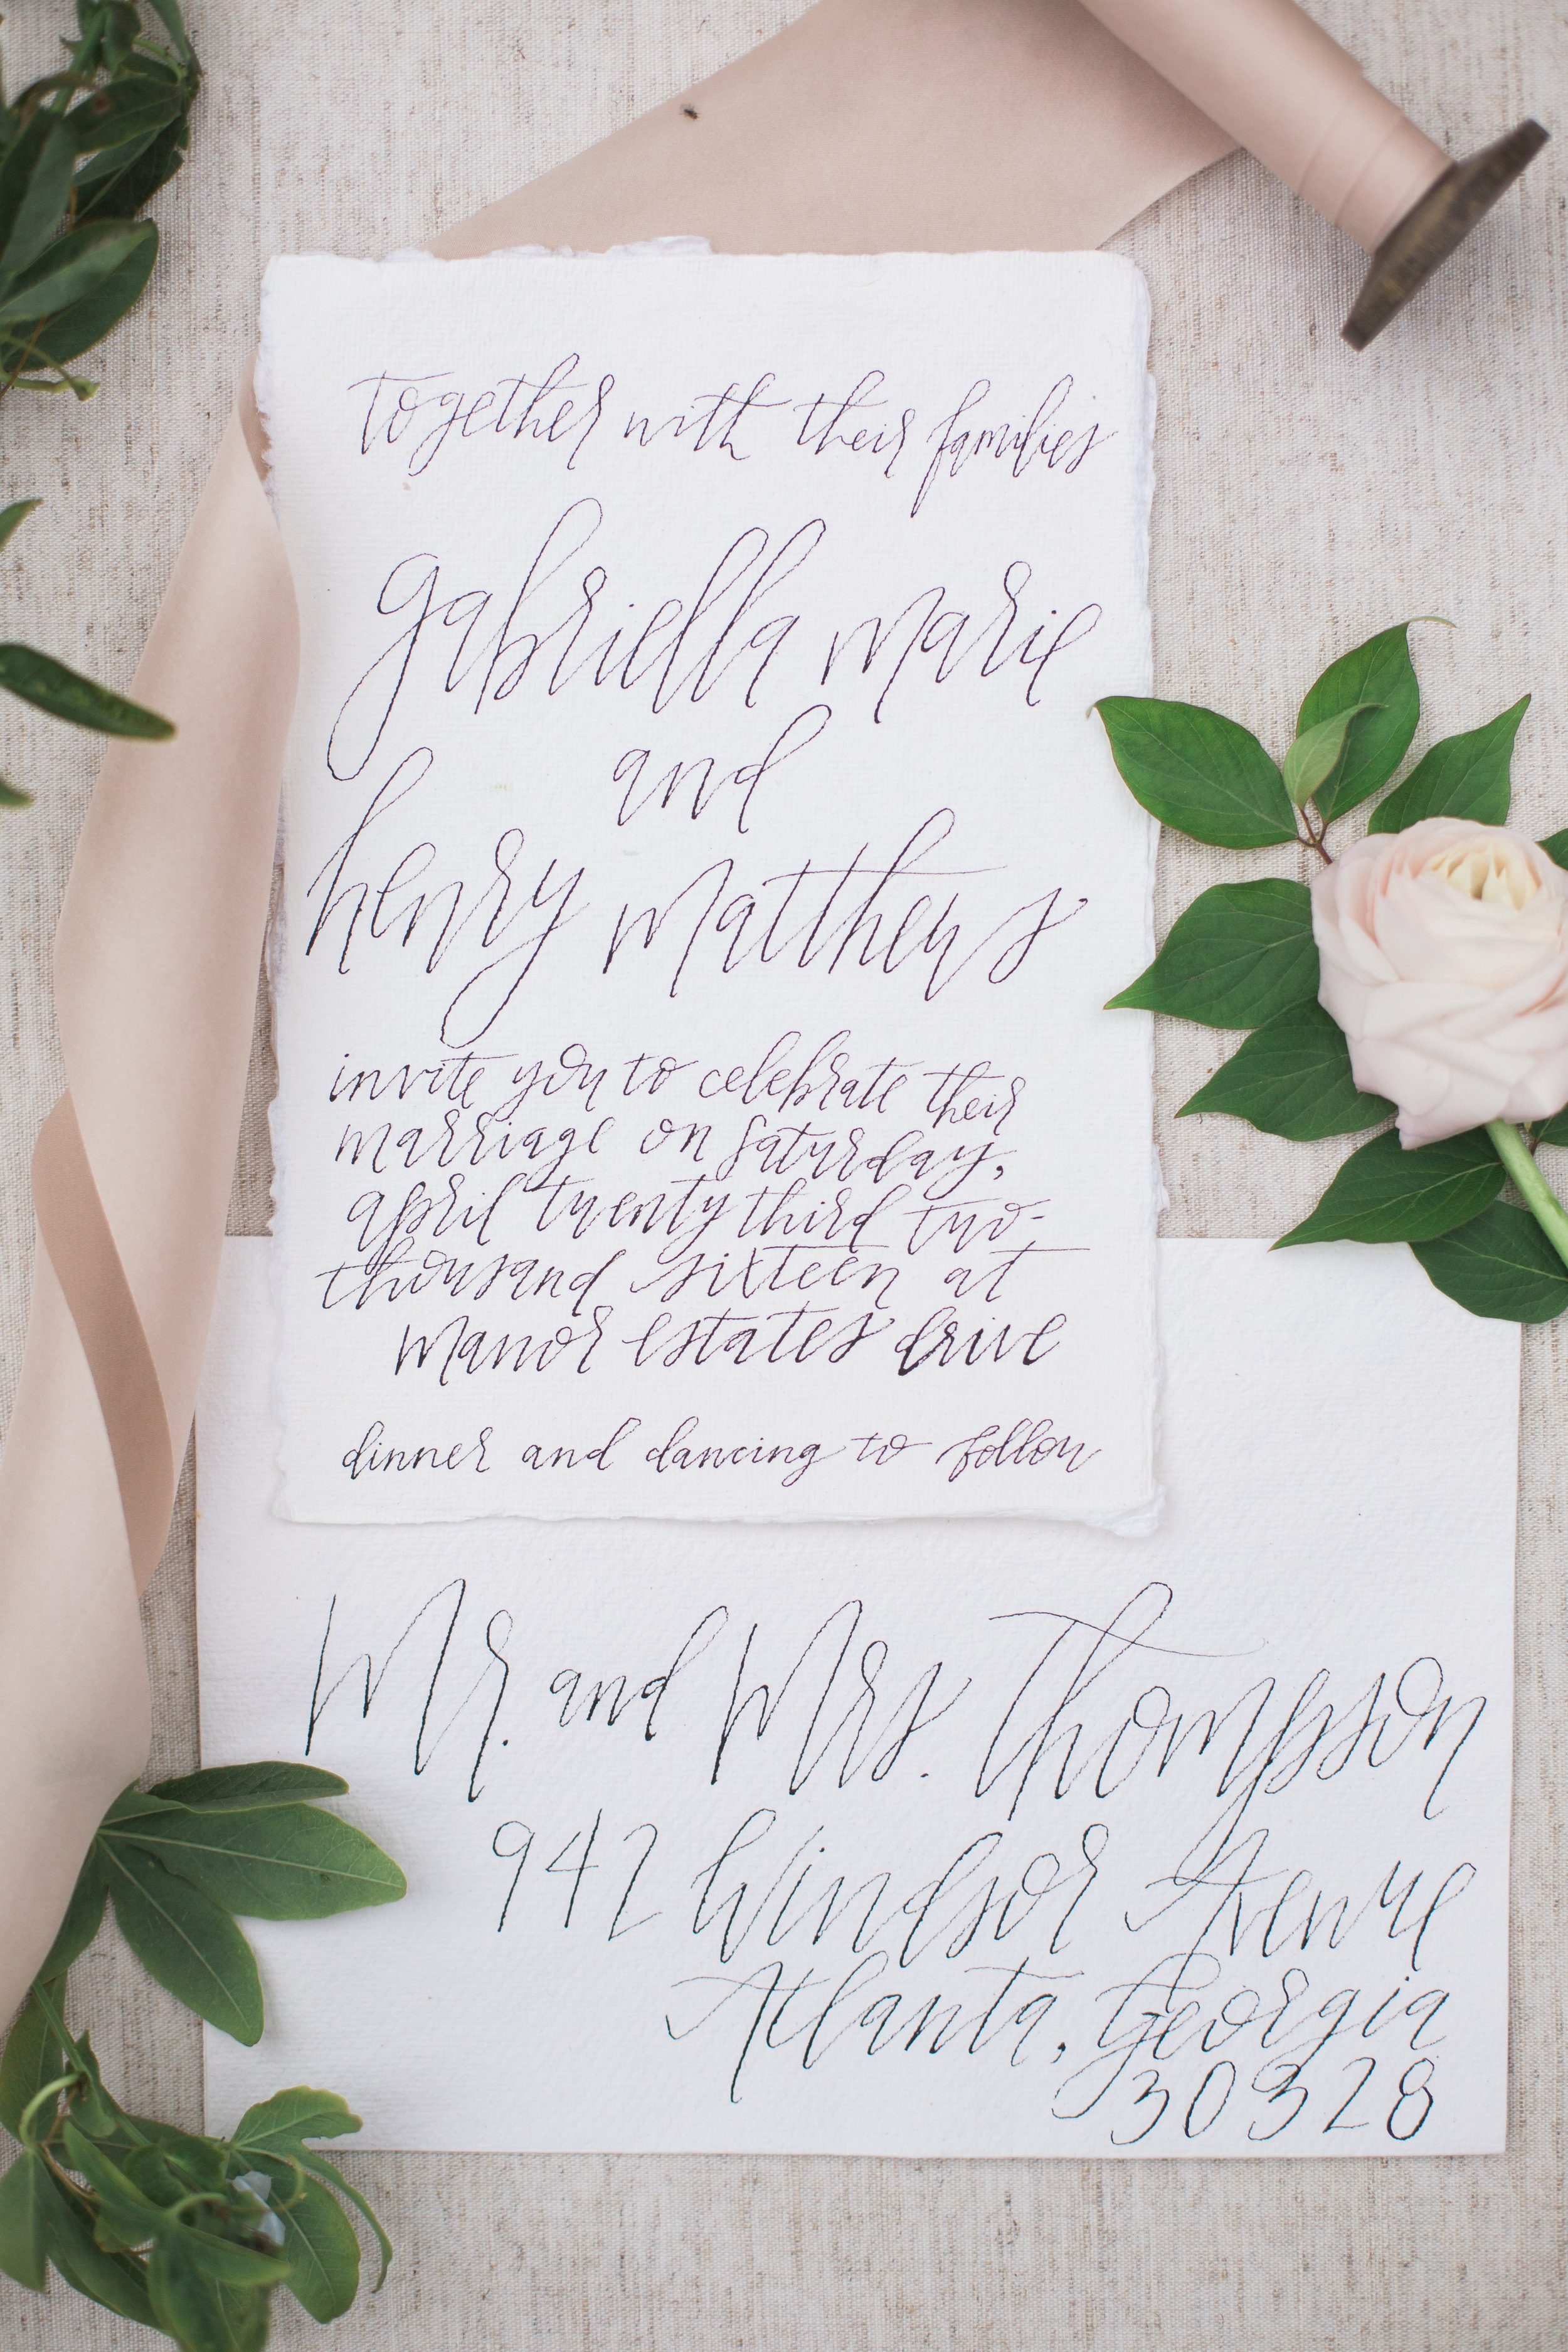 together with their families
gabriella marie
and
henry matthews
invite you to celebrate their
marriage on saturday,
april twenty third two-
thousand sixteen at
manor estates drive
dinner and dancing to follow
Mr. and Mrs. Thompson
942 Windsor Avenue
Atlanta, Georgia
30328